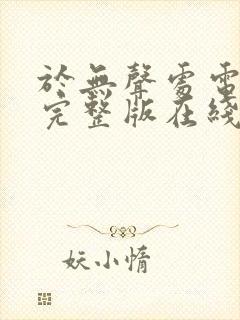 於無聲處電
完整版在綫
妖小惰